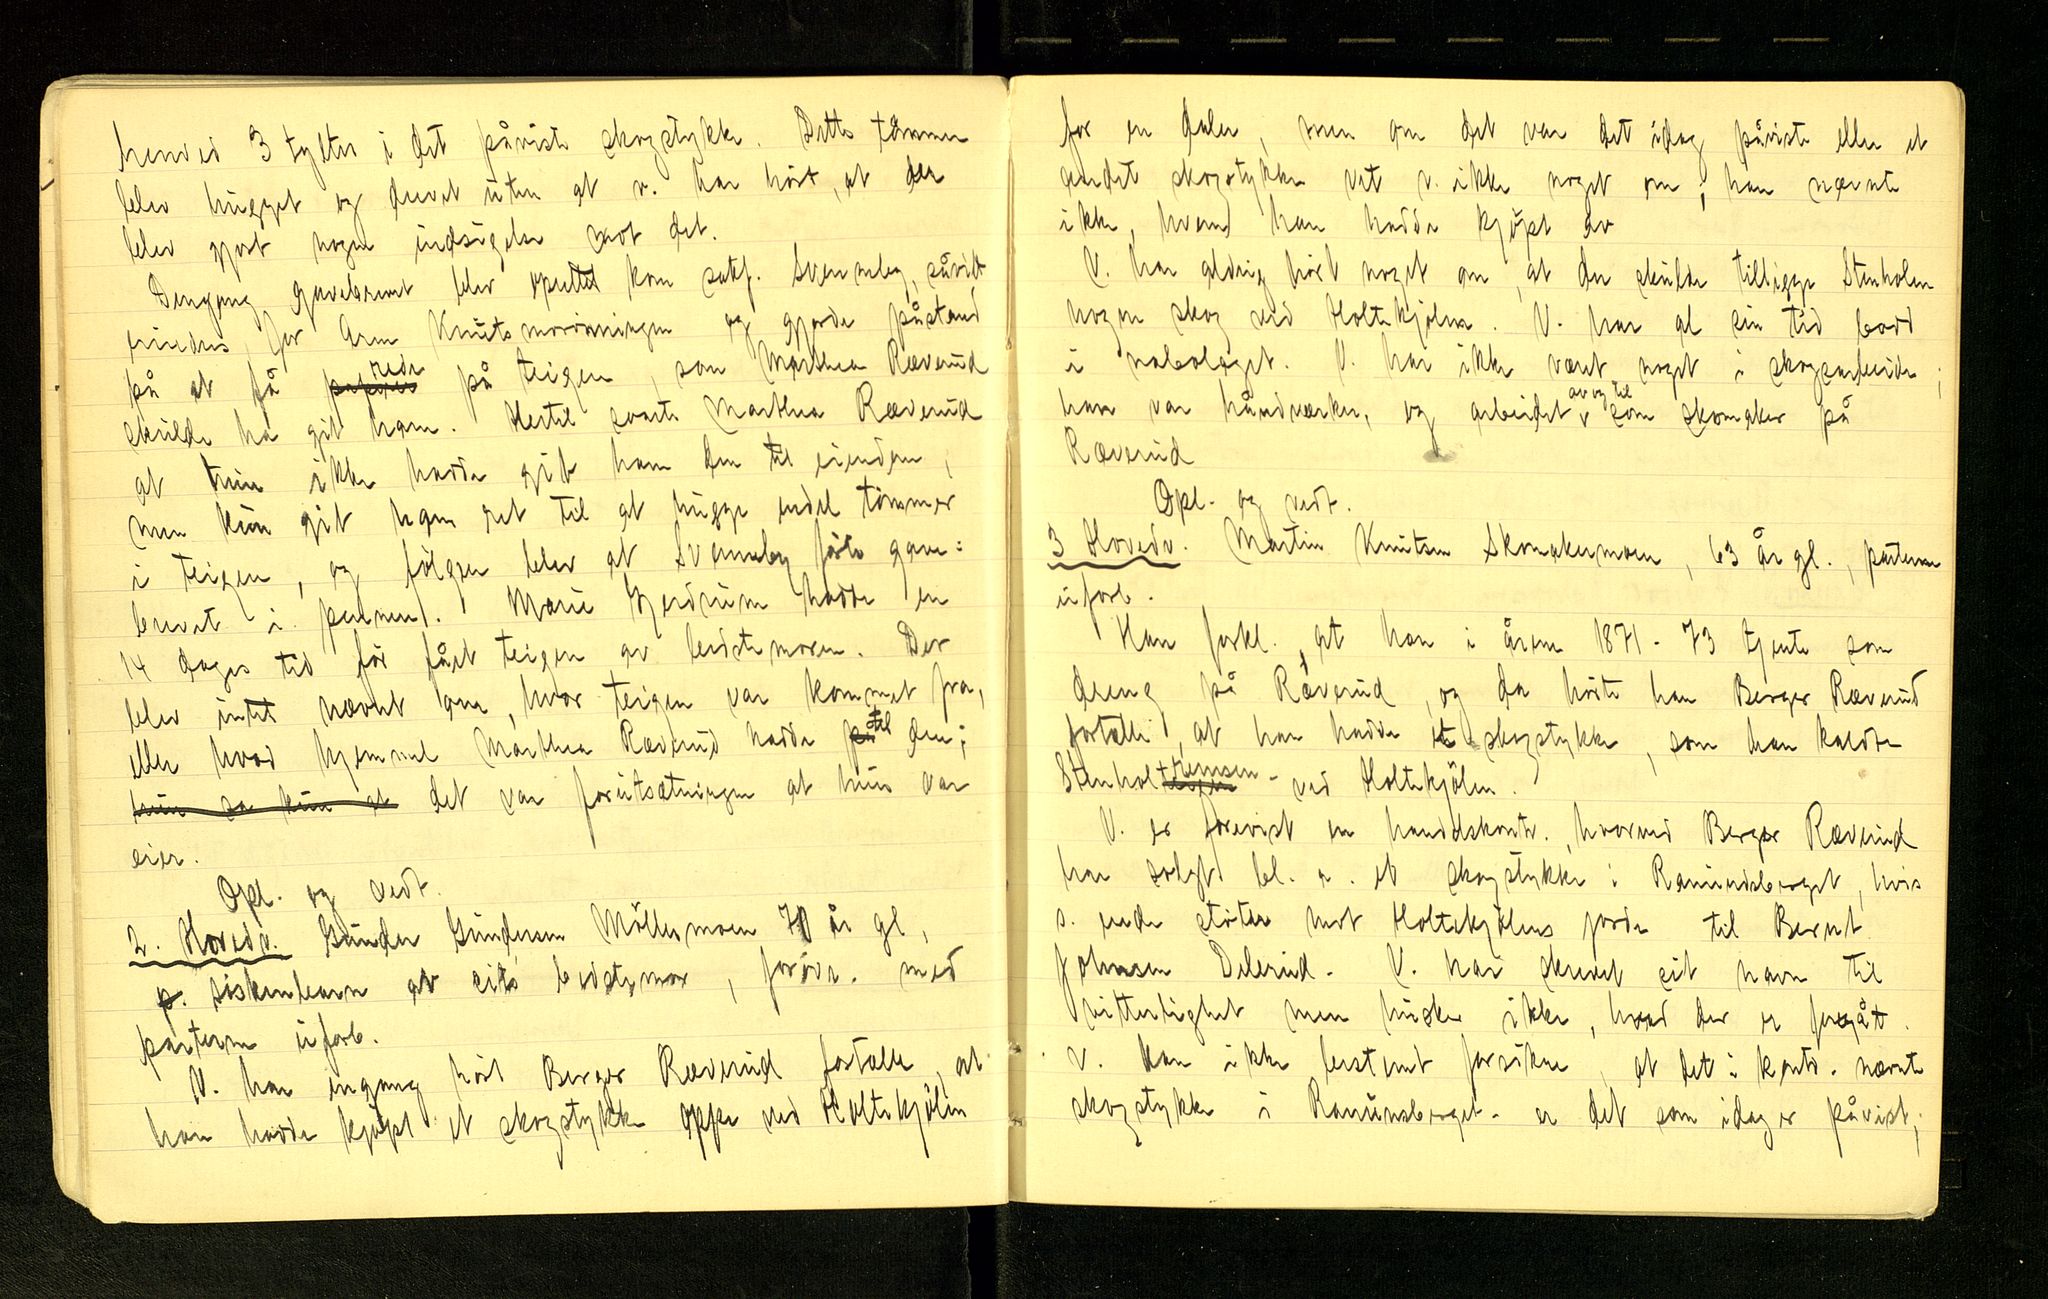 henved 3 tylter i det påviste skogstykke. Dette tømmer
blev hugget og drevet uten at v. har hørt, at der
blev gjort nogen indsigelse mot det.
Dengang gavebrevet blev oprettet kom sakf. Svenneby, såvidt
erindres, for Aren Knutsmorønningen og gjorde påstand
på at få rede på teigen, som Marthea Ræverud
skulde ha git ham. Hertil svarte Marthea Ræverud
at hun ikke hadde git ham den til eiendom,
men kun git ham ret til at hugge endel tømmer
i teigen, og følgen blev at Svenneby førte gave=
brevet i pennen. Marie Gjerdrum hadde en
14 dages tid før fåt teigen av bedstemoren. Der
blev intet nævnt om, hvor teigen var kommet fra,
eller hvad hjemmel Marthea Ræverud hadde til den;
hun sa kun at det var forutsætningen at hun var
eier.
Opl. og vedt.
2. Hovedv. Gunder Gundersen Møllermoen 71 år gl,
p. søskenbarn av cits bedstemor, forøvr. med
parterne uforb.
V. har engang hørt Berger Ræverud fortælle, at
han hadde kjøpt et skogstykke oppe ved Holtekjølen
for en daler, men om det var det idag påviste eller et
andet skogstykke vet v. ikke noget om; han nævnte
ikke, hvem han hadde kjøpt av
V. har aldrig hørt noget om, at der skulde tilligge Stenholen
nogen skog ved Holtekjølen. V. har al sin tid bodd
i nabolaget. V. har ikke vært noget i skogsarbeide;
han var håndverker, og arbeidet av og til som skomaker på
Ræverud
Opl. og vedt.
3 Hovedv. Martin Knutsen Skomakermoen, 63 år gl., parterne
uforb.
Han forkl., at han i årene 1871-73 tjente som
dreng på Ræverud, og da hørte han Berger Ræverud
fortælle, at han hadde et skogstykke, som han kaldte
Stenholtremsen - ved Holtekjølen.
V. er forevist en handelskontr., hvorved Berger Ræverud
har solgt bl. a. et skogstykke i Ramundsberget, hvis
s. ende støter mot Holtekjølens jorde til Bernt
Johnsen Delerud. V. har skrevet sit navn til
vitterlighet men husker ikke, hvad der er foregåt.
V. kan ikke bestemt forsikre, at det i kontr. nævnte
skogstykke i Ramunsberget - er det som idag er påvist;